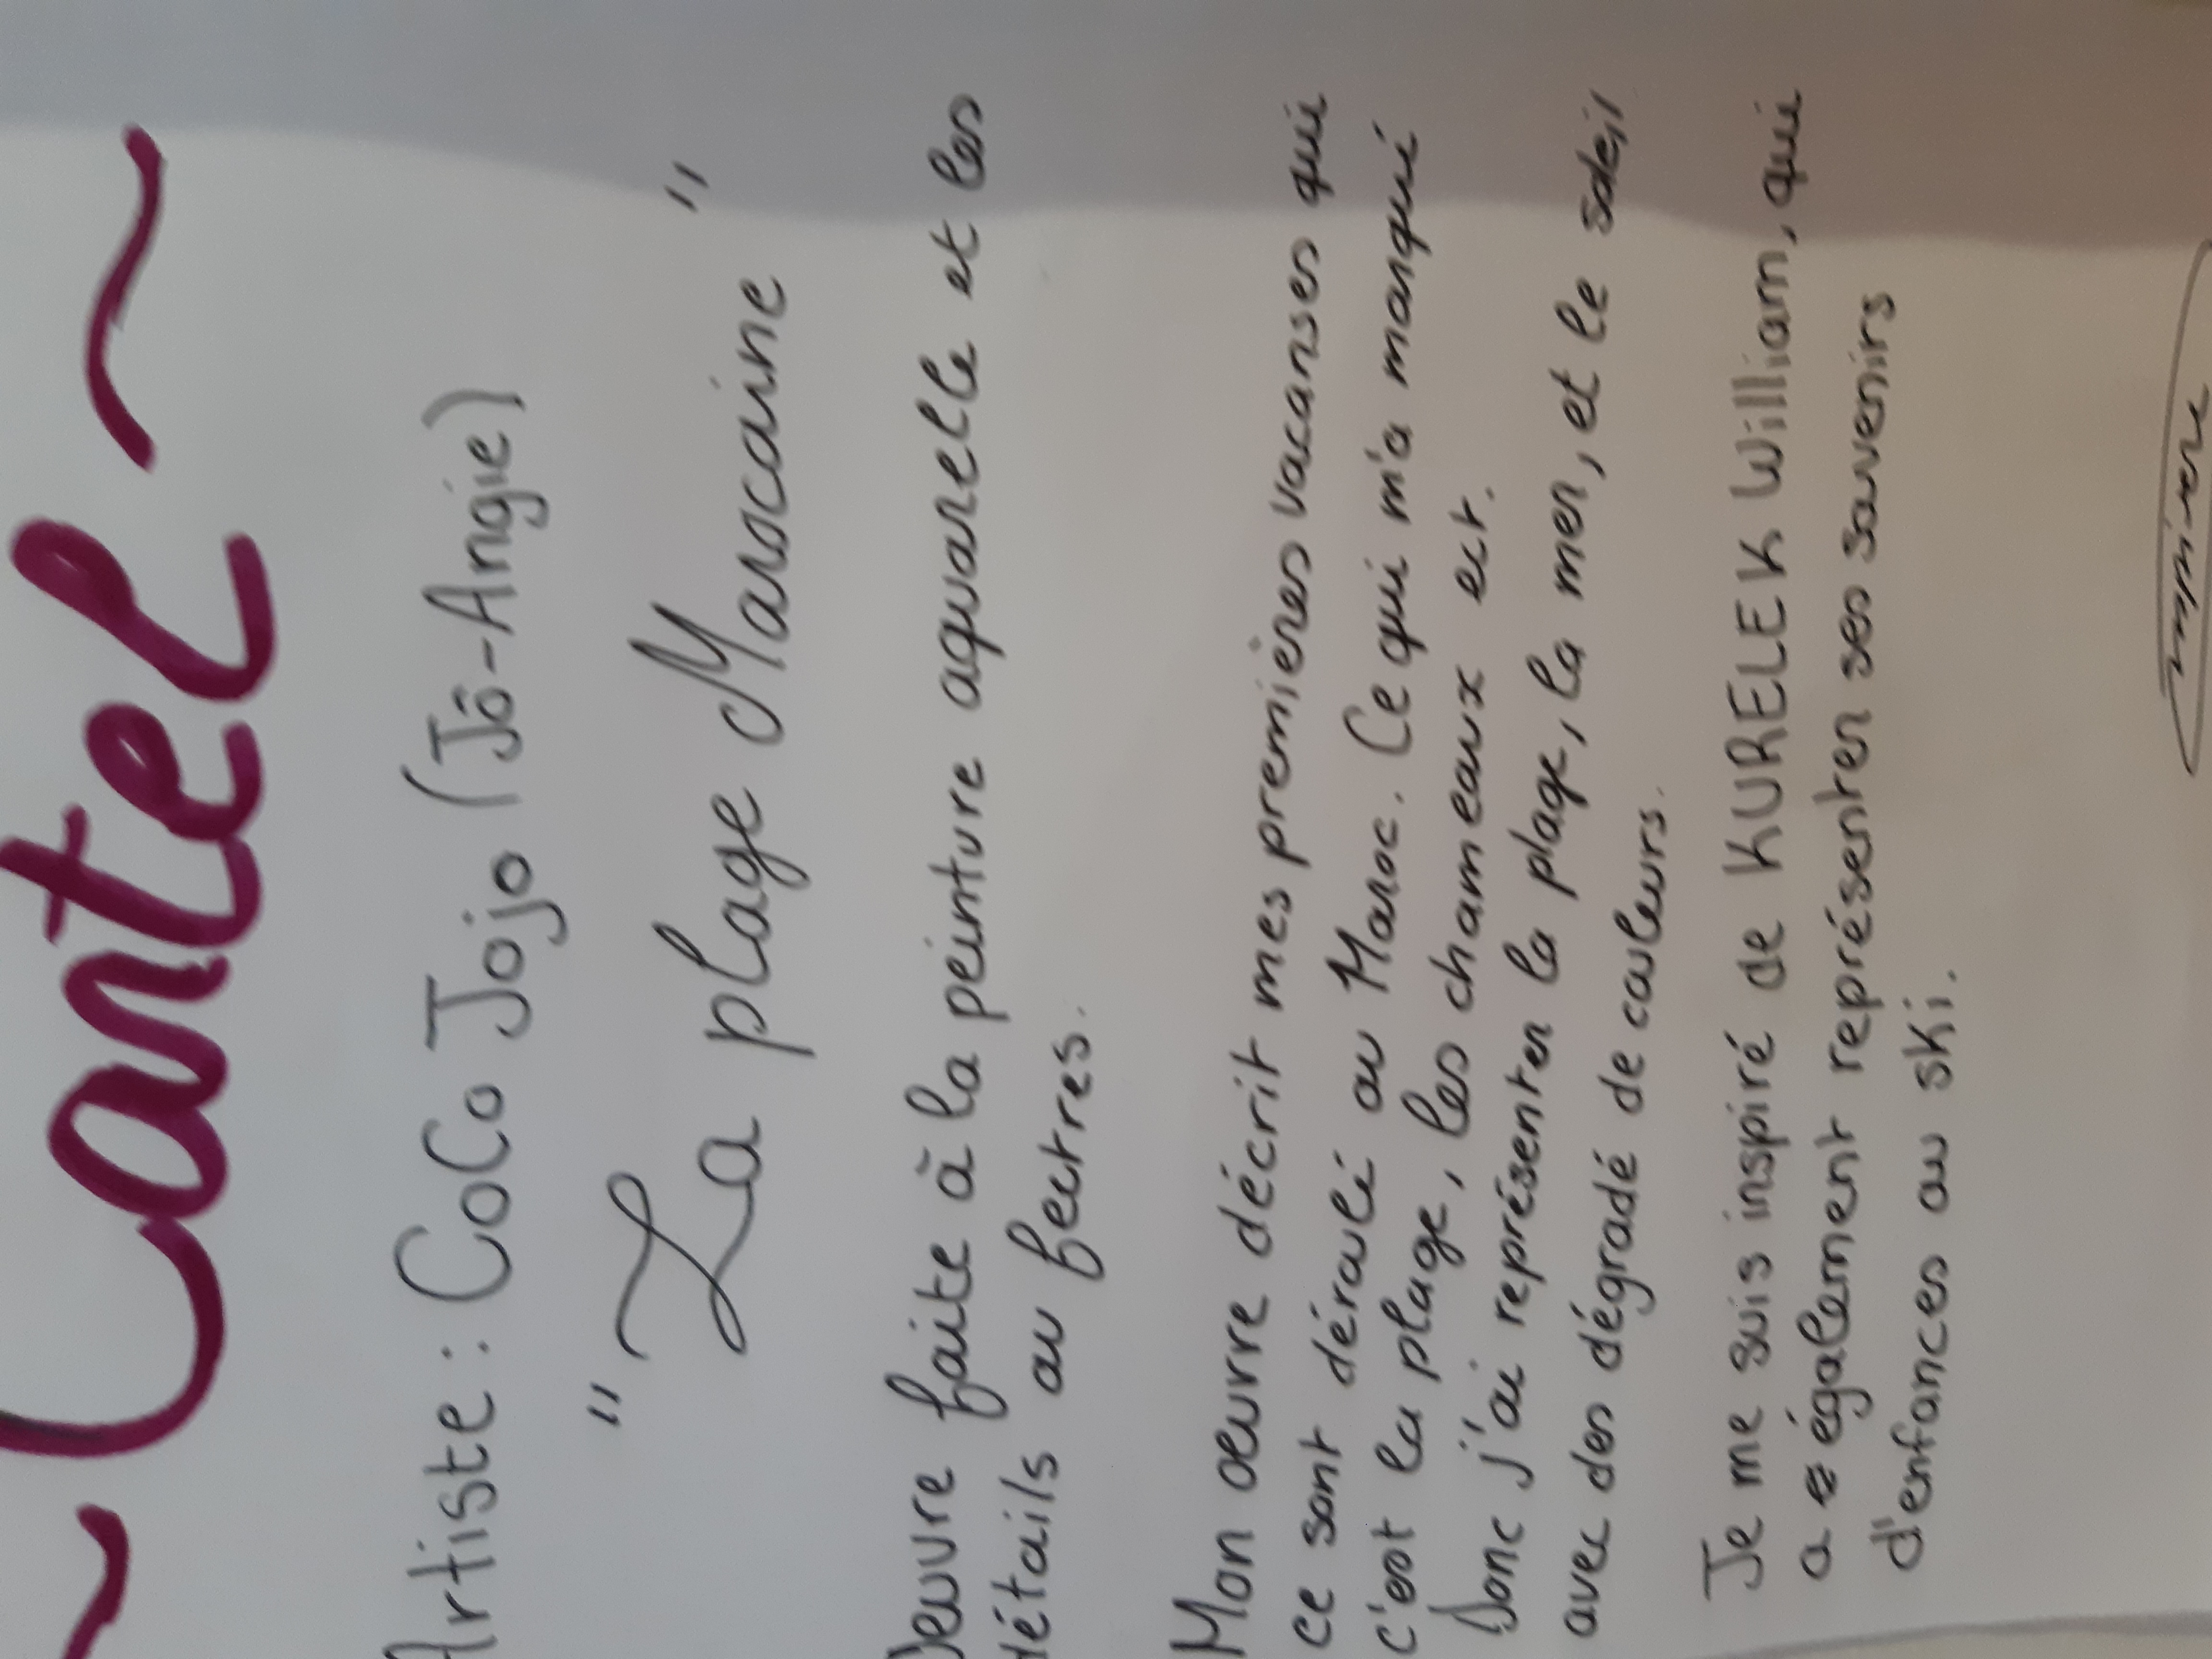 ~ Cartel ~
Artiste : CoCo Jojo (Jô-Angie)
" La plage Marocaine "
Oeuvre faite à la peinture aquarelle et les
détails au feutres.
Mon œuvre décrit mes premières vacanses qui
ce sont déroulé au Maroc. Ce qui m'a manqui
c'est la plage, les chameaux ect.
Donc j'ai représenter la plage, la mer, et le soleil
avec des dégradé de couleurs.
Je me suis inspiré de KURELEK William, qui
a également représenter ses souvenirs
d'enfances au ski.